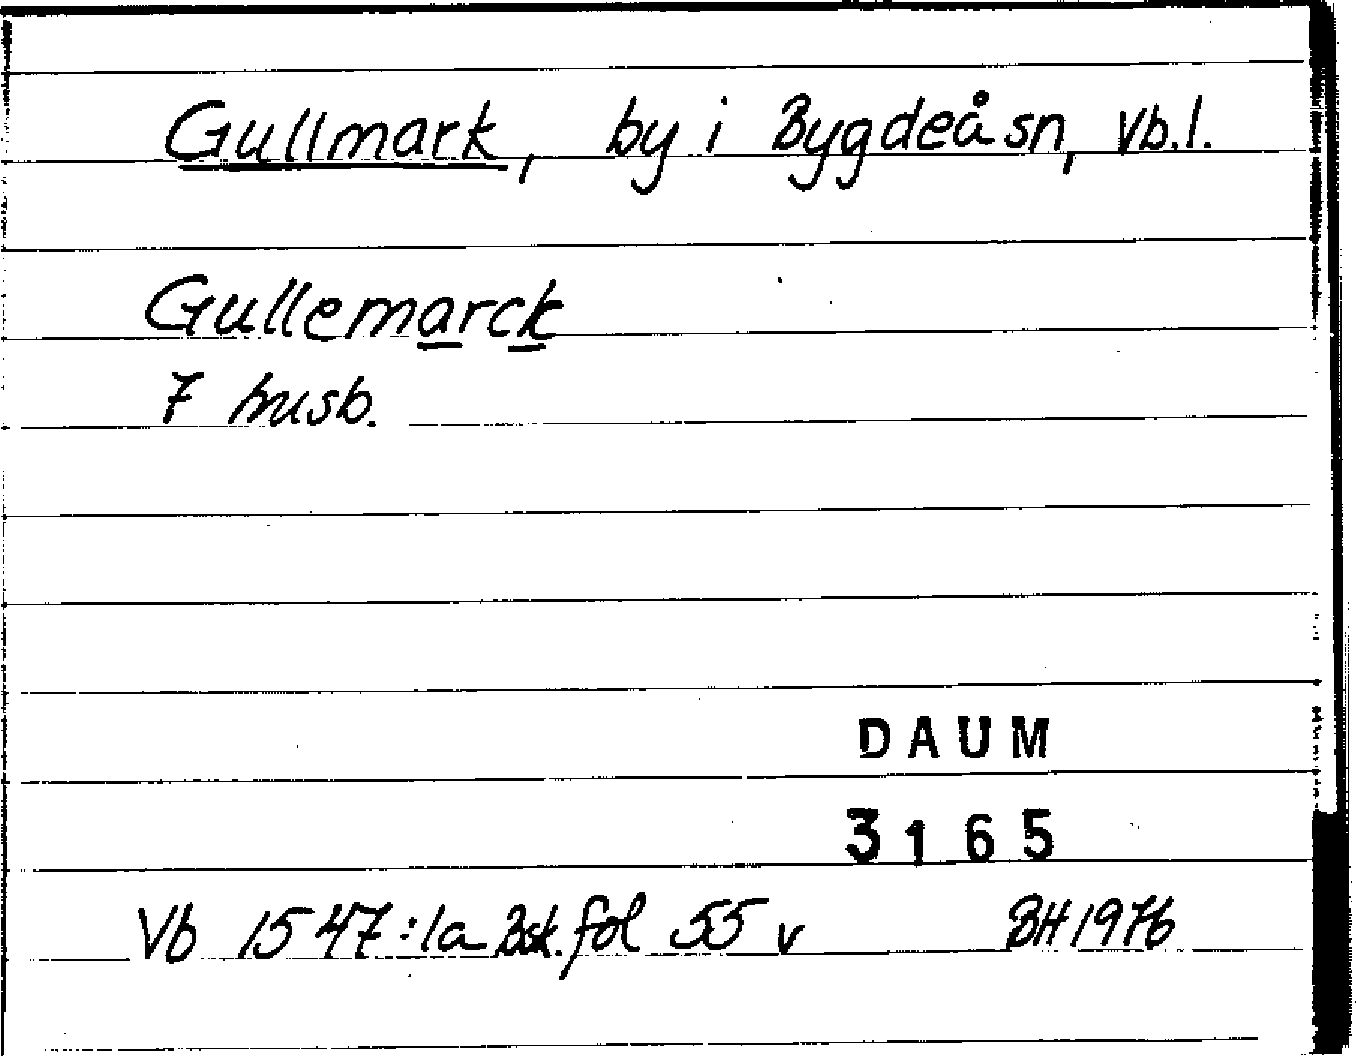 Gullmark, by i Bygdeå sn, Vb.l.
Gullemarck
7 husb.
DAUM
3165
Vb 1547:1a Bsk. fol 55 v BH 1976